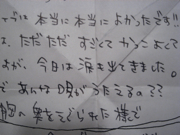 は本当に本当によかったです!!
は、ただただ すごくて かっこよくて
が、今日は 涙も出てきました。
あんな唄がうたえるの??
胸の奥をえぐられた様で